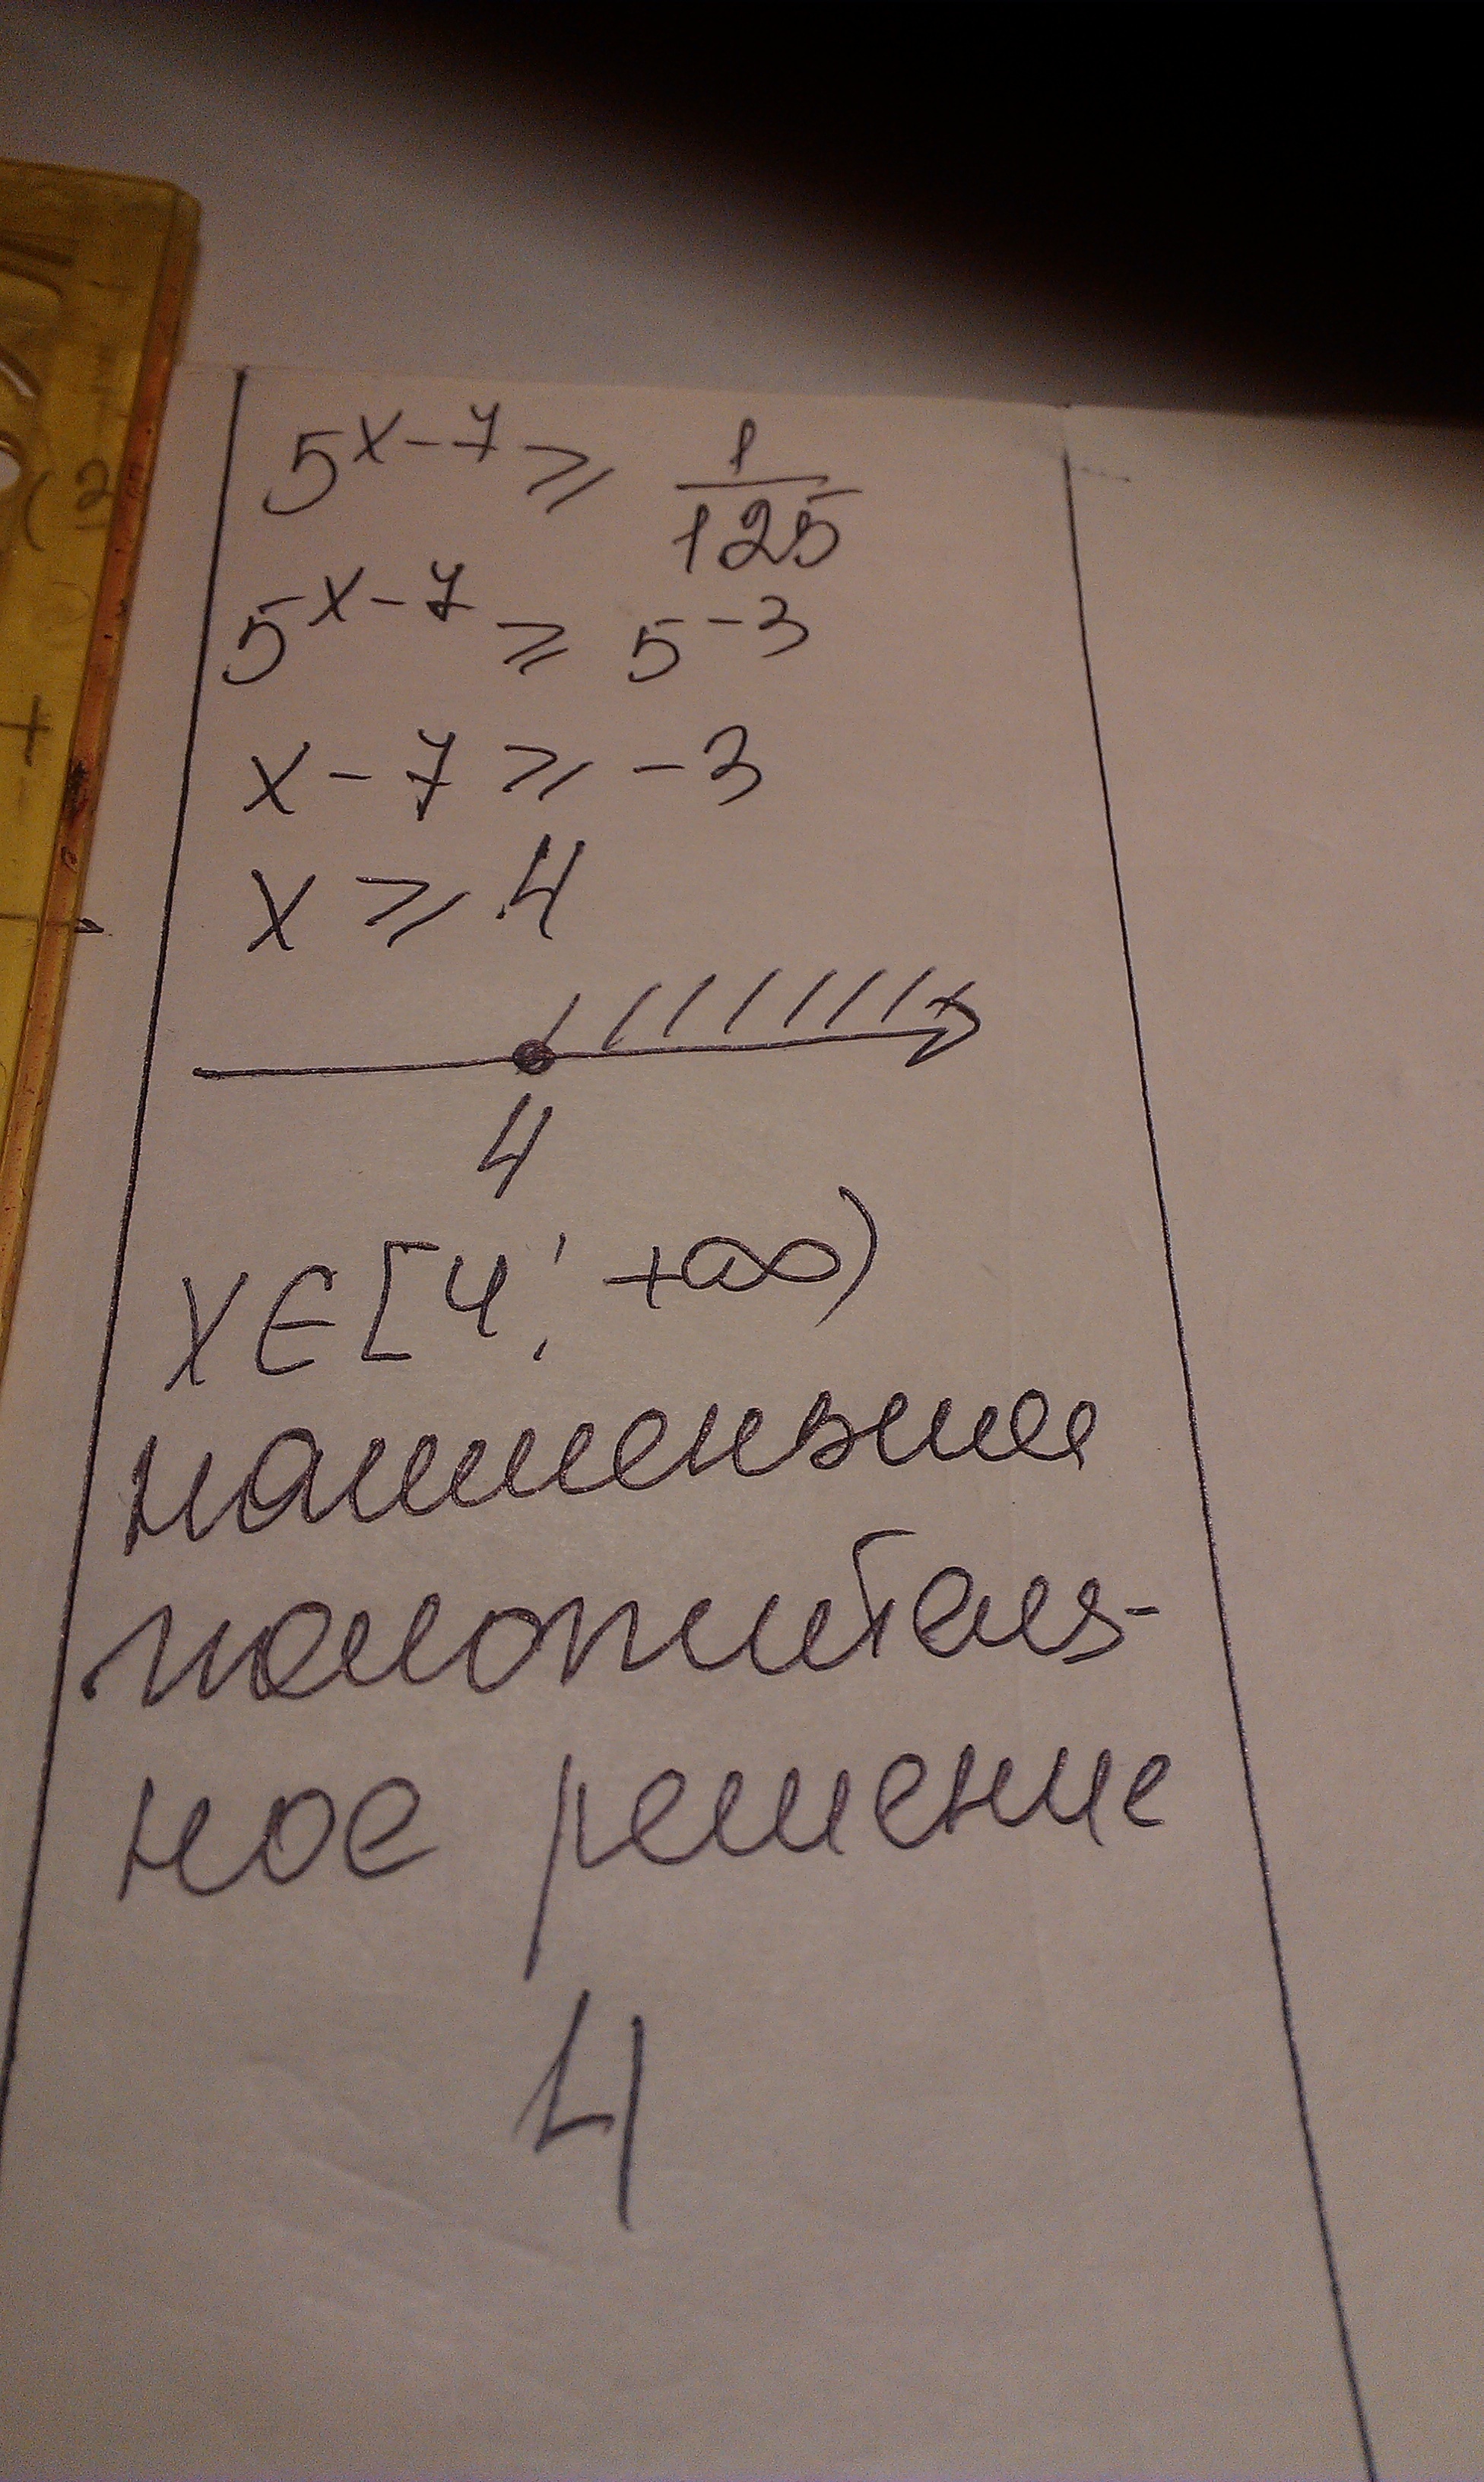 5^{x-7} ≥ \frac{1}{125}
5^{x-7} ≥ 5^{-3}
x - 7 ≥ -3
x ≥ 4
4
x ∈ [4; +∞)
наименьшее
положитель-
ное решение
4
(2
+